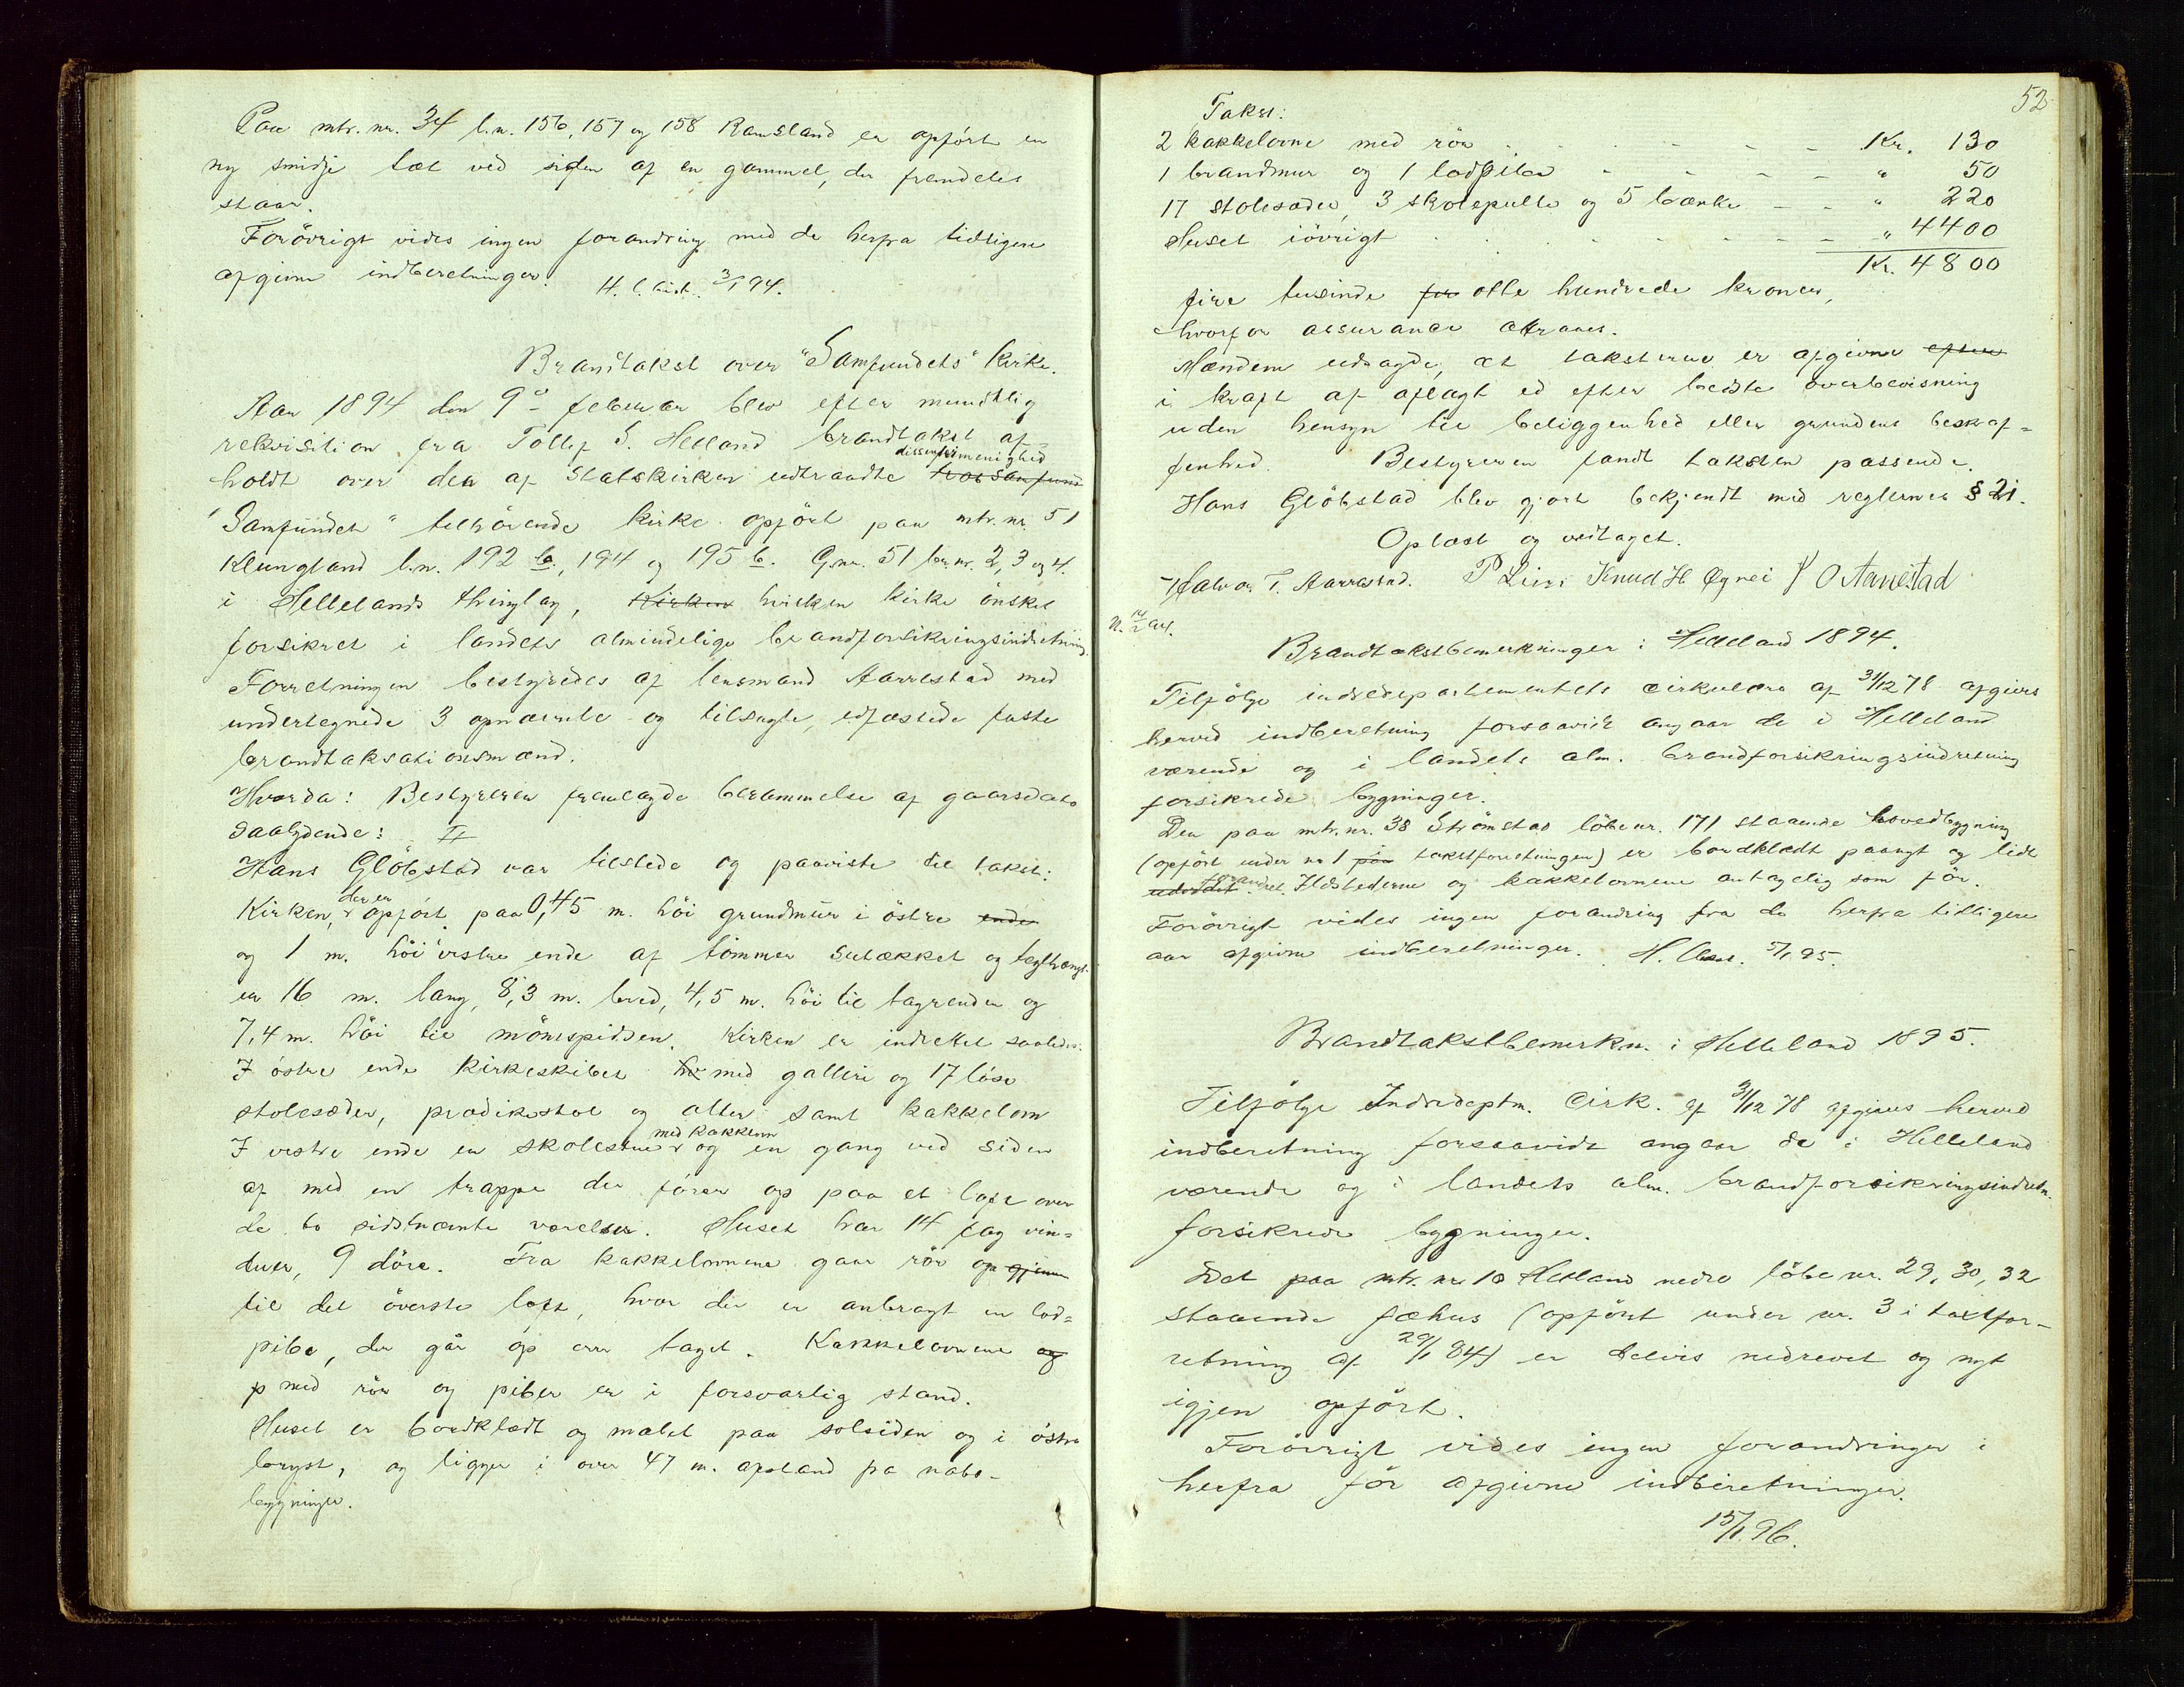 Paa mtr. nr. 34 l.n. 156, 157 og 158 Ramsland er opfört en
ny smidje tæt ved siden af en gammel, der fremdeles
staar.
Forövrigt vides ingen forandring med de herfra tidligere
afgivne indberetninger. 3/1 94.
Brandtakst over "Samfundets" kirke.
Aar 1894 den 9de februar blev efter mundtlig
rekvisition fra Tollef S. Helland brandtakst af-
holdt over den af Statskirken udtraadte trossamfund dissentermenighed
"Samfundet" tilhörende kirke opfört paa mtr. nr. 51
Klungland l.n. 192 b., 194 og 195 b. Gnr. 51 br.nr. 2, 3 og 4.
i Hellelands thinglag, Kirken hvilken kirke önskes
forsikret i landets almindelige brandforsikringsindretning.
Forretningen bestyredes af lensmand Aarrestad med
undertegnede 3 opnævnte og tilsagte, edfæstede faste
brandtaksationsmænd.
Hvorda: Bestyreren fremlagde berammelse af gaarsdato
saalydende:
Hans Glöbstad var tilstede og paaviste til takst:
Kirken, der er opfört paa 0,45 m. höi grundmur i östre ende
og 1 m. höi i vestre ende af tömmer sutækket og teglhængt
er 16 m. lang, 8,3 m. bred, 4,5 m. höi til tagrenden og
7,4 m. höi til mönespidsen. Kirken er indrettet saaledes:
I östre ende kirkeskibet med galleri og 17 löse
stolesæder, prædikestol og alter samt kakkelovn
I vestre ende en skolestue med kakkelovn og en gang ved siden
af med en trappe der förer op paa et loft over
de to sidstnævnte værelser. Huset har 14 fag vin=
duer, 9 döre. Fra kakkelovnene gaar rör op gjennem
til det överste loft, hvor der er anbragt en lod=
pibe, der går op over taget. Kakkelovnene og
p med rör og piber er i forsvarlig stand.
Huset er bordklædt og malet paa solsiden og i östre
bryst, og ligger i over 47 m. afstand fra nabo-
bygninger.
52
Takst:
2 kakkelovne med rör - - - - - Kr. 130
1 brandmur og 1 lodpibe - - - - " 50
17 stolesæder, 3 skolepulte og 5 bænke - - " 220
Huset iövrigt - - - - - - - " 4400
Kr. 4800
fire tusinde fir otte hundrede kroner,
hvorfor assurance attraaes.
Mændene udsagde, at taksterne er afgivne efter
i kraft af aflagt ed efter bedste overbevisning
uden hensyn til beliggenhed eller grundens beskaf=
fenhed. Bestyreren fandt taksten passende.
Hans Glöbstad blev gjort bekjendt med reglernes § 21.
Oplæst og vedtaget.
T. Aarrestad. Knud H. Ognei O Aarrestad
Brandtakstbemerkninger i Helleland 1894.
Tilfölge indredepartementets cirkulære af 31/12 78 afgives
herved indberetning forsaavidt angaar de i Helleland
værende og i landets alm. brandforsikringsindretning
forsikrede bygninger.
Den paa mtr. nr. 38 Strömstad löbenr. 171 staaende hovedbygning
(opfört under no 1 i takstforretningen) er bordklædt paanyt og lidt
udvidet forandret. Ildstederne og kakkelovnene antagelig som för.
Forövrigt vides ingen forandring fra de herfra tidligere
aar afgivne indberetninger. 5/1 95.
Brandtakstbemerkn. i Helleland 1895.
Tilfölge Indredeptm. Cirk. af 31/12 78 afgives herved
indberetning forsaavidt angaar de i Helleland
værende og i landets alm. brandforsikringsindretn.
forsikrede bygninger.
Det paa mtr. nr. 10 Hetland nedre löbenr. 29, 30, 32
staaende fæhus (opfört under nr. 3 i taxtfor-
retning af 29/1 84) er delvis nedrevet og nyt
igjen opfört.
Forövrigt vides ingen forandringer i
herfra för afgivne indberetninger.
15/1 96.